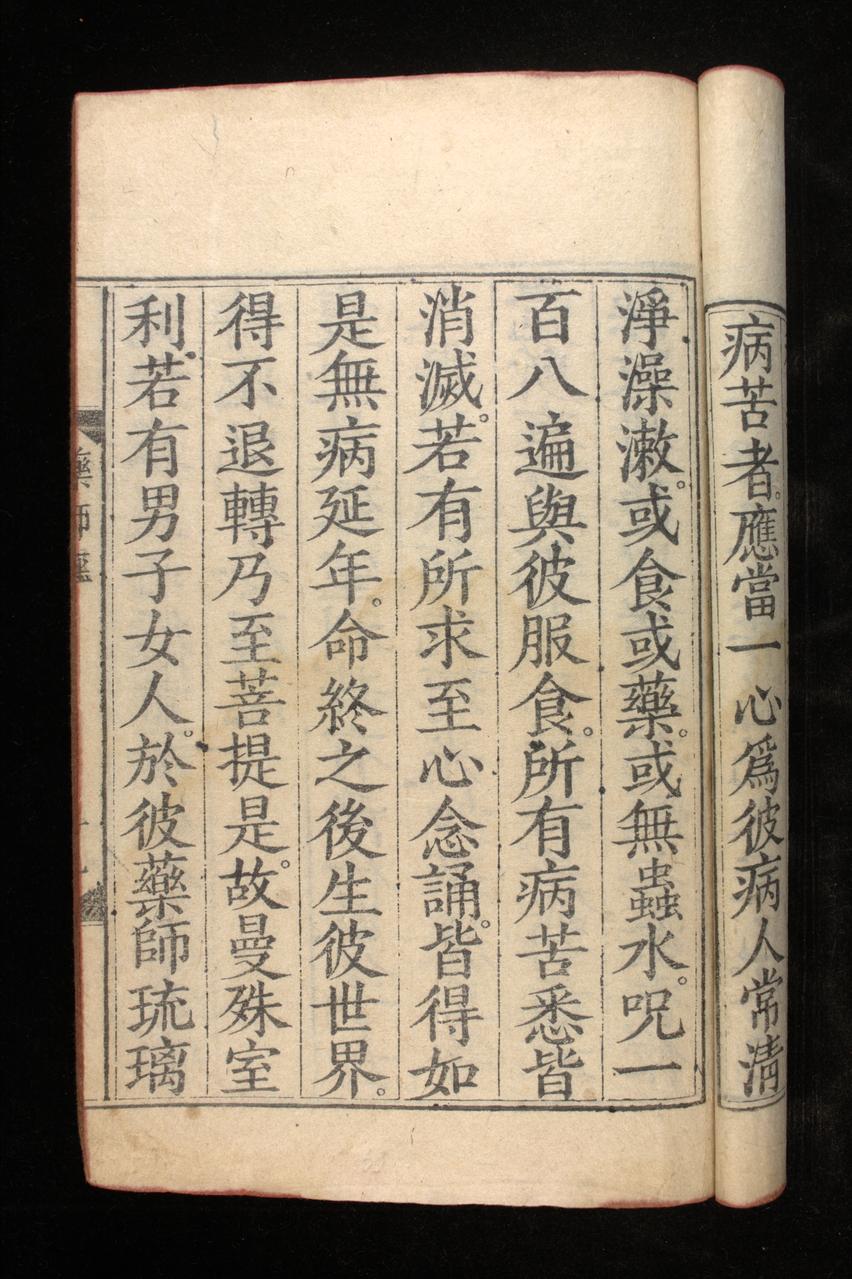 病苦者。應當一心爲彼病人常清
淨澡漱。或食或藥。或無蟲水。呪一
百八遍與彼服食。所有病苦悉皆
消滅。若有所求至心念誦。皆得如
是無病延年。命終之後生彼世界。
得不退轉乃至菩提是。故曼殊室
利若有男子女人。於彼藥師琉璃
藥師經